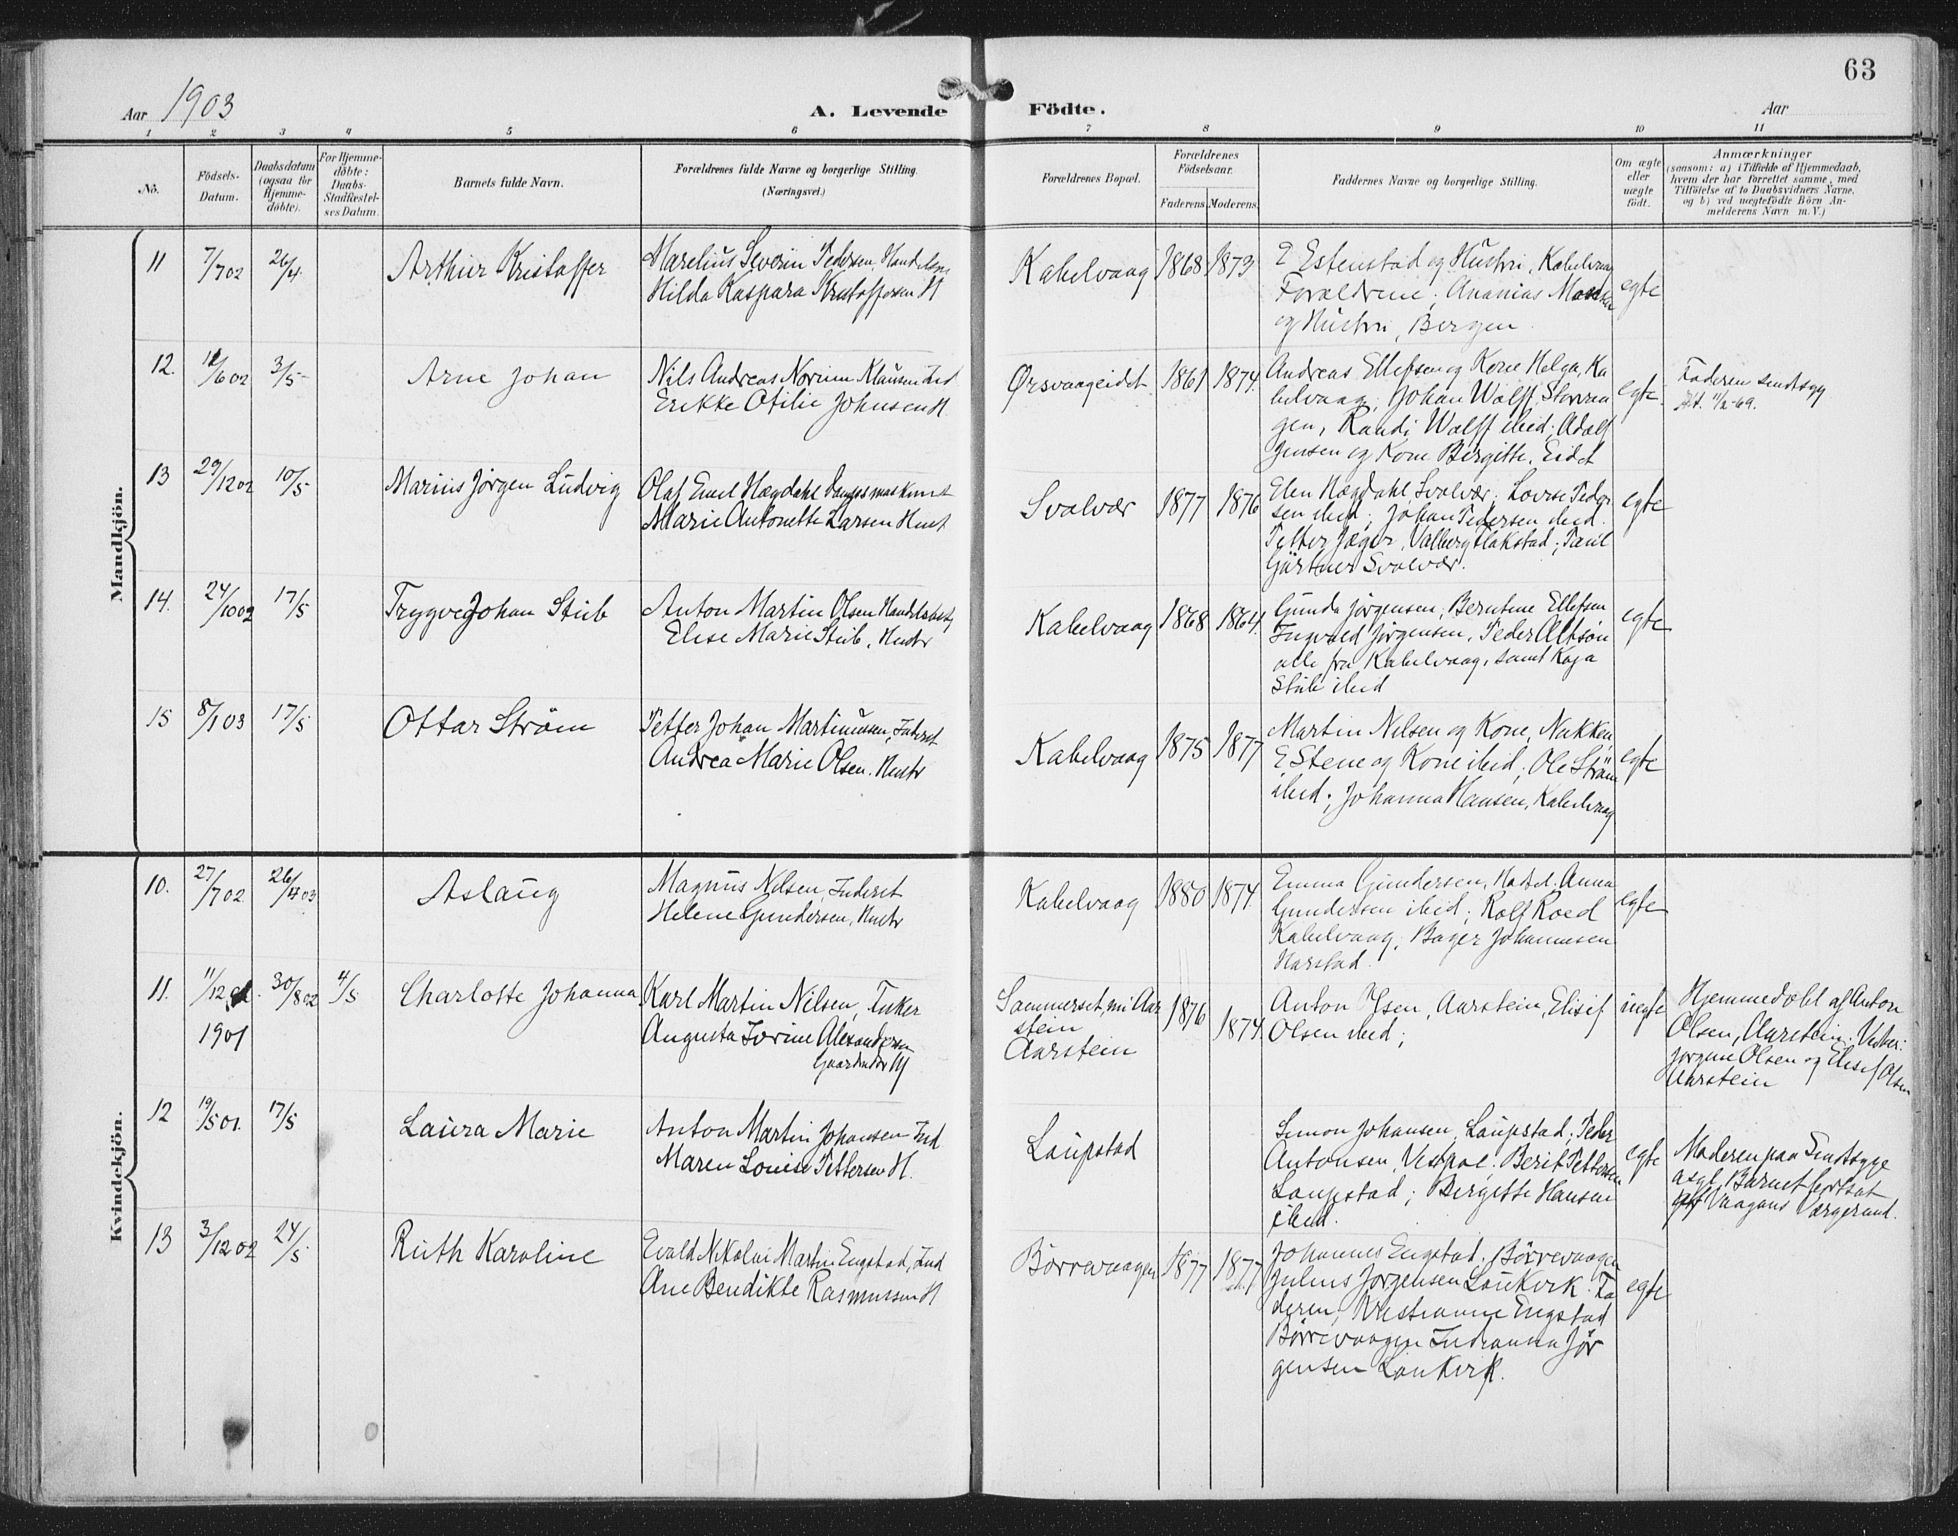 63
Aar 1903
A. Levende Födte.
Aar
1 2 3 4 5 6 7 8 9 10 11
No.
Födsels-
Datum.
Daabsdatum
(ogsaa for
Hjemme-
döbte).
For Hjemme-
döbte:
Daabs-
Stadfæstel-
ses Datum.
Barnets fulde Navn.
Forældrenes fulde Navne og borgerlige Stilling.
(Næringsvei.)
Forældrenes Bopæl.
Forældrenes
Födselsaar.
Faderens. Moderens.
Faddernes Navne og borgerlige Stilling.
Om ægte
eller
uægte
födt.
Anmærkninger
(saasom: a) i Tilfælde af Hjemmedaab,
hvem der har forrettet samme, med
Tilföielse af to Daabsvidners Navne,
og b) ved uægtefödte Börn An-
melderens Navn m. V.)
Mandkjön.
11 7/7 02 26/4 Arthur Kristoffer
Marelius Severin Pedersen,
Hilda Kaspara Kristoffersen H
Kabelvaag 1868 1873
E Estenstad og Hustru, Kabelvaag
Forældrene; Ananias
og Hustru, Bergen.
egte
12. 6 02 3/5 Arne Johan
Nils Andreas Norum Klausen Ind
Erikke Otilie Johnsen H
Ørsvaageidet 1861 1874.
Andreas Ellefsen og Kone Helga, Ka
belvaag; Johan Wolff,
gen, Randi Wolff ibid; Adolf
Jensen og Kone Birgitte, Eidet
egte
Faderen sindssyg
11/2-69.
13 29/12 02 10/5 Marius Jørgen Ludvig
Olaf Emil Hægdahl
Marie Antonette Larsen Hust
Svolvær 1877 1876
Elen Hægdahl, Svolvær; Lovise Peder
sen ibid; Johan Pedersen ibid.
Petter Jæger, Valberg Flakstad; Paul
Gärtner Svolvær.
egte
14. 24/10 02 17/5 Trygve Johan Stub
Anton Martin Olsen
Elise Marie Stub, Hustr
Kabelvaag 1868 1864.
Gunda Jørgensen; Berntine Ellefsen
Ingvald Jørgensen, Peder
alle fra Kabelvaag, samt Kaja
Stub ibid
egte
15 8/1 03 17/5 Ottar Strøm
Petter Johan Martinussen, Inderst
Andrea Marie Olsen. Hustr
Kabelvaag 1875 1877
Martin Nilsen og Kone, Nakken,
E Stene og Kone ibid; Ole Strøm
ibid; Johanna Hansen, Kabelvaag
egte
Kvindekjön.
10. 27/7 02 26/4 03 Aslaug
Magnus Nilsen, Inderst
Helene Gundersen, Hustr
Kabelvaag 1880 1874
Emma Gundersen, Anna
Gundersen ibid; Rolf Roed
Kabelvaag; Bager Johannesen
Harstad.
egte
11. 11/12 1901 30/8 02 4/5 Charlotte Johanna
Karl Martin Nilsen,
Augusta Jorine Alexandersen
Sommerset, nu Aar
stein
Aarstein
1876 1874
Anton Olsen, Aarstein, Elisif
Olsen ibid;
uegte
Hjemmedøbt af Anton
Olsen, Aarstein.
Jørgine Olsen og Elisif Olsen
Aarstein
12 19/5 01. 17/5 Laura Marie
Anton Martin Johansen Ind
Maren Louise Pettersen H.
Laupstad
Simon Johansen, Laupstad; Peder
Antonsen, Vestpol. Berit Pettersen
Laupstad; Birgitte Hansen
ibid.
egte
Moderen paa Sindssyge
asyl, Barnet bortsat
af Vaagans Værgeraad.
13 3/12 02 24/5 Ruth Karoline
Evald Nikolai Martin Engstad, Ind
Ane Bendikte Rasmussen H
Børrevaagen 1877 1877
Johannes Engstad, Børrevaagen
Julius Jørgensen Laukvik. Fa
deren, Kristianne Engstad
Børrevaagen Indianna Jør
gensen Laukvik.
egte